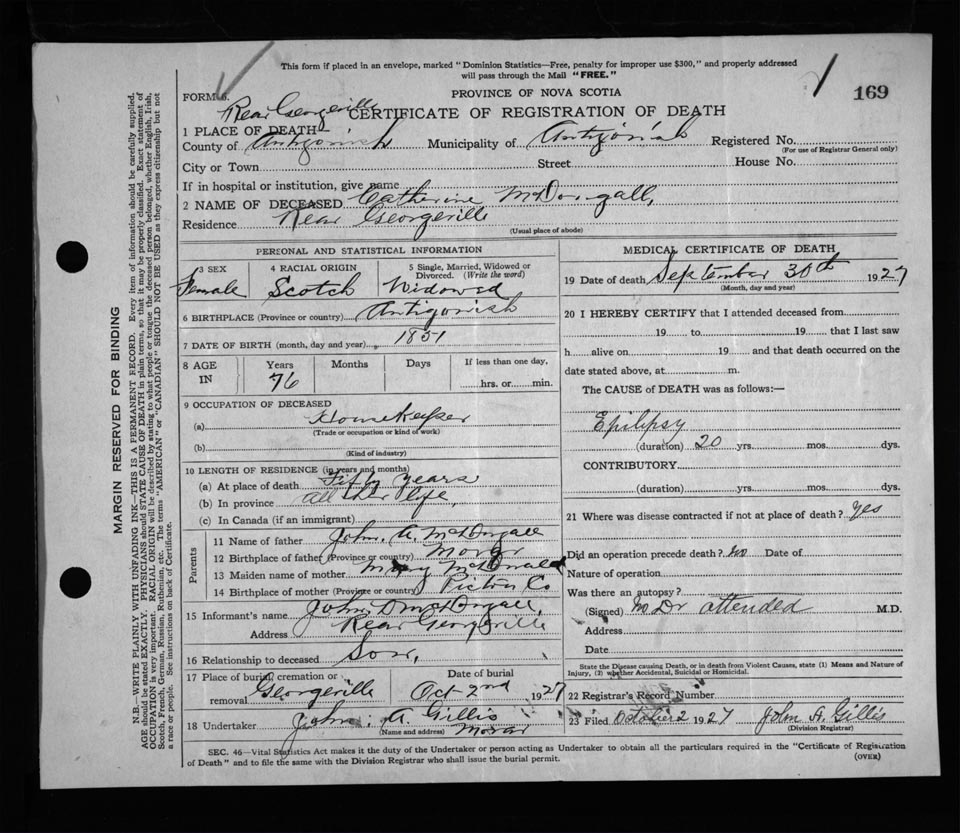 This form if placed in an envelope, marked "Dominion Statistics—Free, penalty for improper use $300," and properly addressed
will pass through the Mail "FREE."
FORM 6.
PROVINCE OF NOVA SCOTIA
169
Rear Georgeville
CERTIFICATE OF REGISTRATION OF DEATH
1 PLACE OF DEATH—
County of Antigonish Municipality of Antigonish Registered No.
(For use of Registrar General only)
City or Town Street House No.
If in hospital or institution, give name
2 NAME OF DECEASED Catherine McDougall,
Residence Rear Georgeville
(Usual place of abode)
PERSONAL AND STATISTICAL INFORMATION
3 SEX 4 RACIAL ORIGIN 5 Single, Married, Widowed or Divorced. (Write the word)
Female Scotch Widowed
6 BIRTHPLACE (Province or country) Antigonish
7 DATE OF BIRTH (month, day and year) 1851
8 AGE IN Years Months Days If less than one day,
76 hrs. or min.
9 OCCUPATION OF DECEASED
(a) Housekeeper
(Trade or occupation or kind of work)
(b)
(Kind of industry)
10 LENGTH OF RESIDENCE (in years and months)
(a) At place of death Fifty years
(b) In province all her life,
(c) In Canada (if an immigrant)
Parents
11 Name of father John. A. McDougall
12 Birthplace of father (Province or country) Morar
13 Maiden name of mother Mary McDonald
14 Birthplace of mother (Province or country) Pictou Co
15 Informant's name John D McDougall,
Address Rear Georgeville
16 Relationship to deceased Son,
17 Place of burial, cremation or removal Date of burial
Georgeville Oct 2nd 1927
18 Undertaker John. A. Gillis
(Name and address) Morar
MEDICAL CERTIFICATE OF DEATH
19 Date of death September 30th 1927
(Month, day and year)
20 I HEREBY CERTIFY that I attended deceased from
19 to 19 that I last saw
h alive on 19 and that death occurred on the
date stated above, at m.
The CAUSE of DEATH was as follows:—
Epilipsy
(duration) 20 yrs. mos. dys.
CONTRIBUTORY
(duration) yrs. mos. dys.
21 Where was disease contracted if not at place of death? yes
Did an operation precede death? no Date of
Nature of operation
Was there an autopsy?
(Signed) no Dr attended M.D.
Address
Date
State the Disease causing Death, or in death from Violent Causes, state (1) Means and Nature of
Injury, (2) whether Accidental, Suicidal or Homicidal.
22 Registrar's Record Number
23 Filed October 2 1927 John A. Gillis
(Division Registrar)
SEC. 46—Vital Statistics Act makes it the duty of the Undertaker or person acting as Undertaker to obtain all the particulars required in the "Certificate of Registration
of Death" and to file the same with the Division Registrar who shall issue the burial permit.
(OVER)
MARGIN RESERVED FOR BINDING
N.B.—WRITE PLAINLY WITH UNFADING INK—THIS IS A PERMANENT RECORD. Every item of information should be carefully supplied.
AGE should be stated EXACTLY. PHYSICIANS should STATE CAUSE OF DEATH in plain terms, so that it may be properly classified. Exact statement of
OCCUPATION is very important. RACIAL ORIGIN will be described by stating to what people or tongue the deceased person belonged, whether English, Irish,
Scotch, French, German, Russian, Ruthenian, etc. The terms "AMERICAN" or "CANADIAN" SHOULD NOT BE USED as they express citizenship but not
a race or people. See instructions on back of Certificate.